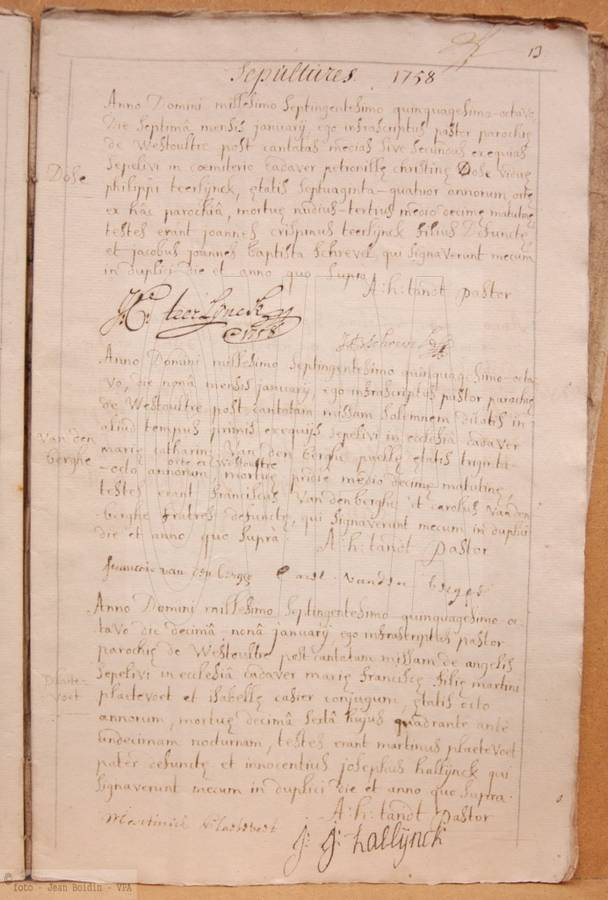 13
Sepultures 1758
Anno Domini millesimo septingentesimo quinquagesimo-octavo
Die septimâ mensis januarij ego infrascriptus pastor parochię
de Westoultre post cantatas secundas exequias
Dose
sepelivi in coemiterio cadaver petronillę christinę Dose viduę
philippi teerlynck, ętatis septuaginta-quatuor annorum, ortę
ex hâc parochiâ, mortuę nudius-tertius medio decimę matutinę
testes erant joannes crispinus teerlynck filius Defunctę
et jacobus joannes baptista Schrevel qui signaverunt mecum
in duplici die et anno quo supra
A:h:tandt pastor
teerlynck
1758
Anno Domini millesimo septingentesimo quinquagesimo-octa-
vo, die nonâ mensis januarij, ego infrascriptus pastor parochię
de Westoultre post cantatam missam solemnem dilatis in
aliud tempus primis exequijs sepelivi in ecclesiâ cadaver
van den
berghe
marię catharinę Van den berghe puellę ętatis triginta
ortę ex Westoultre
-octo annorum, mortuę pridie medio decimę matutinę,
testes erant franciscus Van den berghe et carolus Vanden
berghe fratres defunctę, qui signaverunt mecum in duplici
die et anno quo suprà
A:h:tandt Pastor
francois van den berghe
Carel vanden berghe
Anno Domini millesimo septingentesimo quinquagesimo-oc-
tavo die decimâ-nonâ januarij ego infrascriptus pastor
parochię de Westoultre post cantatam missam de angelis
sepelivi in ecclesiâ cadaver marię franciscę filię martini
plaete-
voet
plaetevoet et isabellę casier conjugum, ętatis octo
annorum, mortuę decimâ sextâ hujus quadrante ante
undecimam nocturnam, testes erant martinus plaetevoet
patèr defunctę et innocentius josephus hallynck qui
signaverunt mecum in duplici die et anno quo supra.
A:h:tandt Pastor
J: J: hallynck
© foto - Jean Boidin - VPA